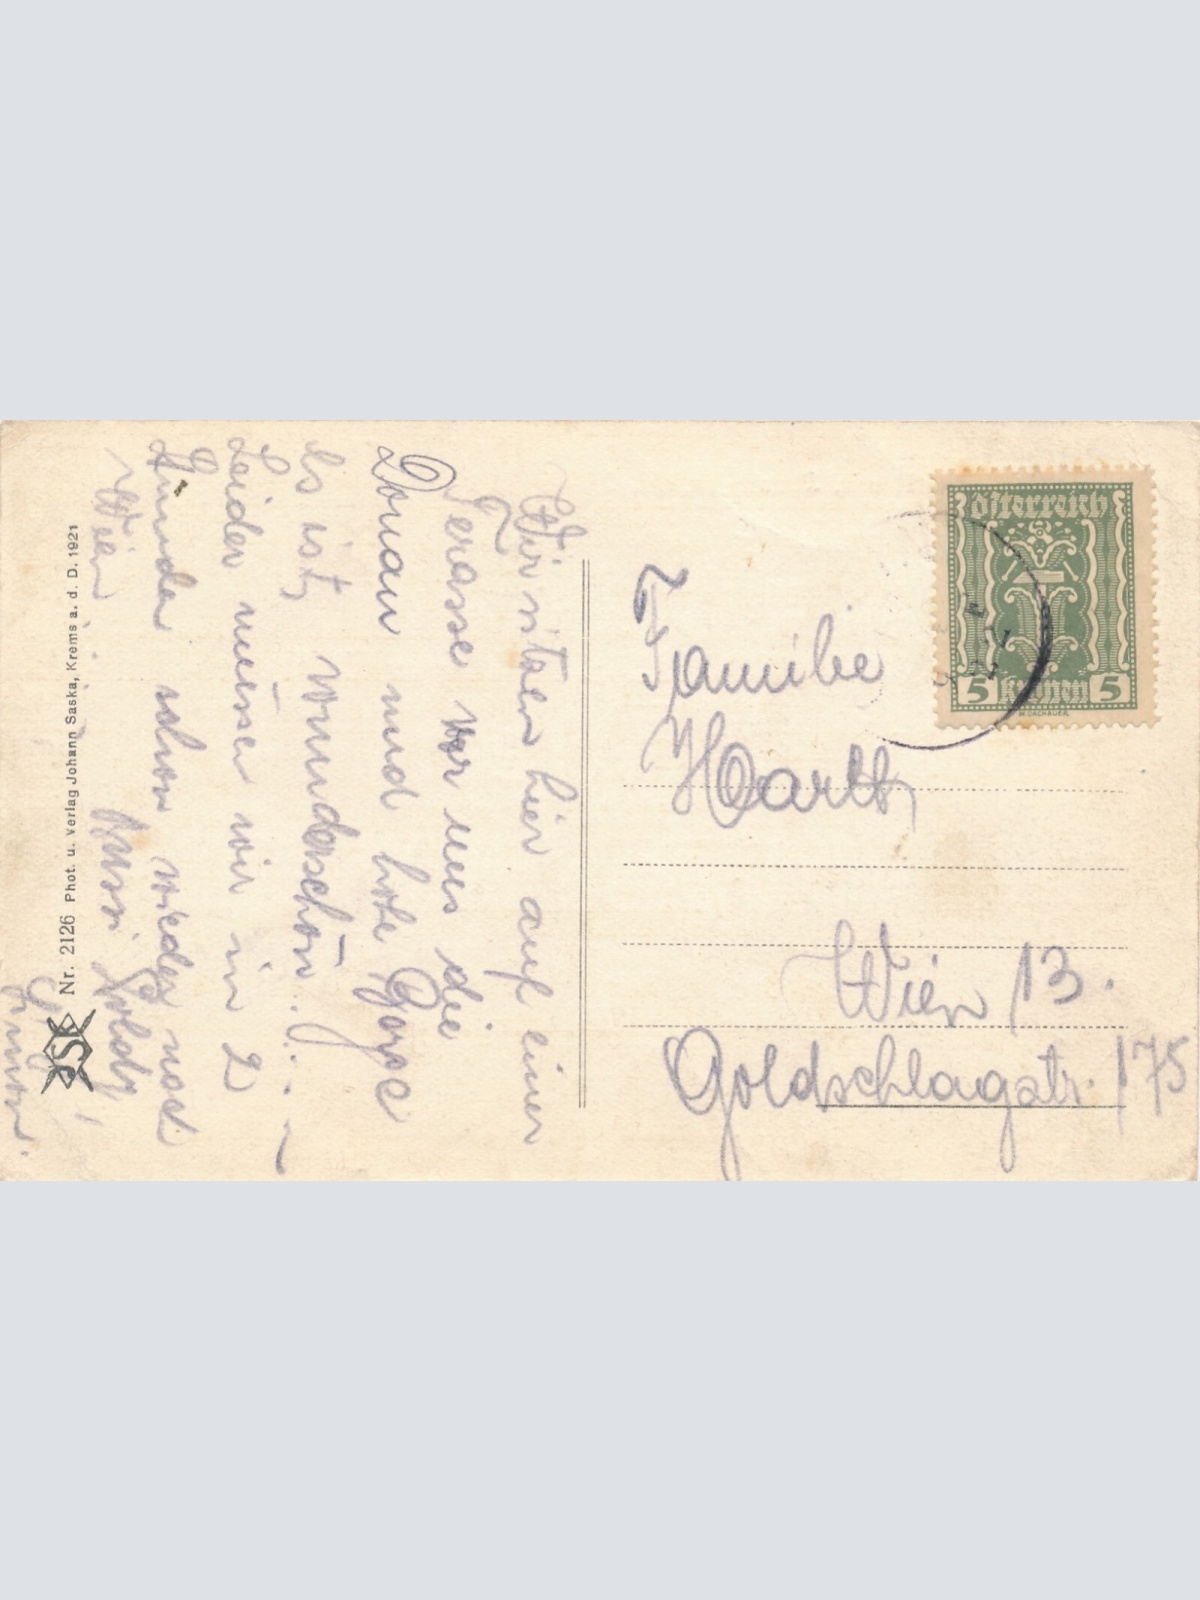 Wir sitzen hier auf einer
Terasse vor uns die
Donau und hohe Berge
Es ist wunderschön . . . .
Leider müssen wir in 2
Stunden schon wieder nach
Wien
Nr. 2126 Phot. u. Verlag Johann Saska, Krems a. d. D. 1921
JSK
Österreich
5 Kronen 5
W. DACHAUER
Familie
Hartl,
Wien 13.
Goldschlagstr. 175